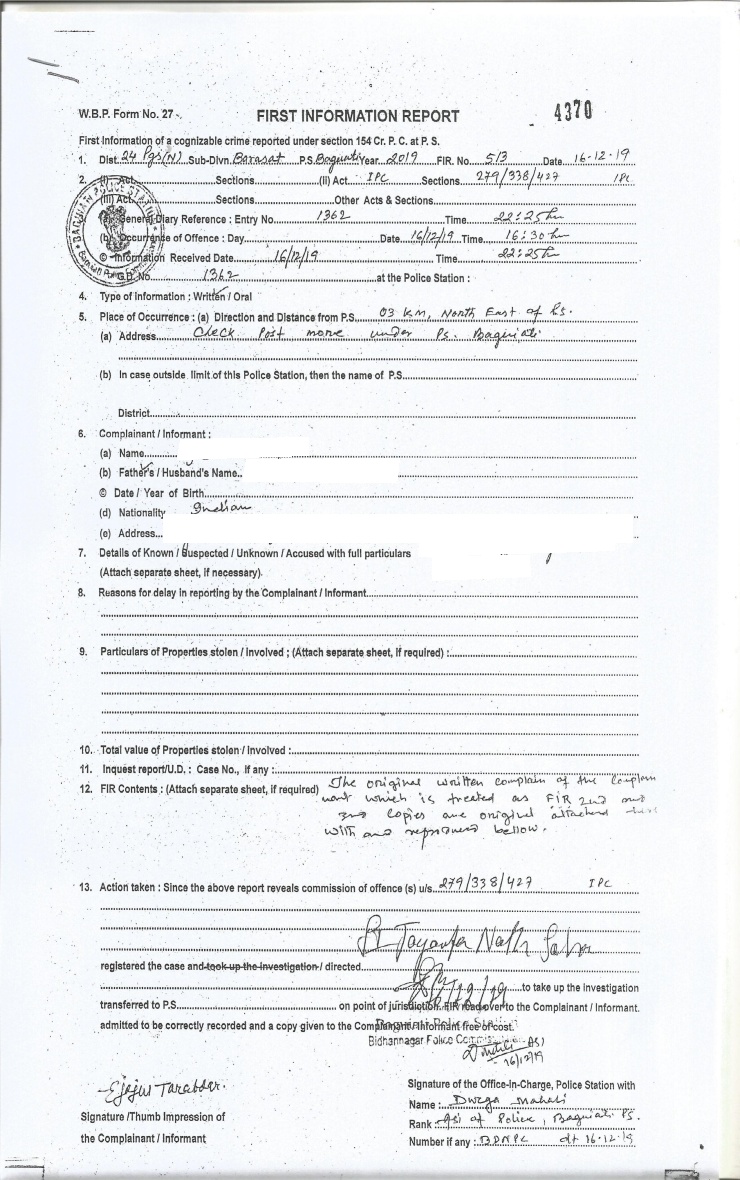 W.B.P. Form No. 27
FIRST INFORMATION REPORT
4370
First Information of a cognizable crime reported under section 154 Cr. P. C. at P. S.
1. Dist. 24 Pgs(N) Sub-Divn. Barasat P.S. Baguiati Year 2019 FIR. No. 513 Date 16-12-19
2. (i) Act Sections (ii) Act. IPC Sections 279/338/427 IPC
(iii) Act Sections Other Acts & Sections
General Diary Reference : Entry No. 1362 Time 22:25 hr
(b) Occurrence of Offence : Day Date 16/12/19 Time 16:30 hr
© Information Received Date 16/12/19 Time 22:25 hr
G.D. No. 1362 at the Police Station :
4. Type of information : Written / Oral
5. Place of Occurrence : (a) Direction and Distance from P.S. 03 KM, North East of P.S.
(a) Address Check Post more under Ps. Baguiati
(b) In case outside limit of this Police Station, then the name of P.S.
District
6. Complainant / Informant :
(a) Name
(b) Father's / Husband's Name
© Date / Year of Birth
(d) Nationality Indian
(e) Address
7. Details of Known / Suspected / Unknown / Accused with full particulars
(Attach separate sheet, if necessary).
8. Reasons for delay in reporting by the Complainant / Informant
9. Particulars of Properties stolen / Involved ; (Attach separate sheet, if required) :
10. Total value of Properties stolen / Involved :
11. Inquest report/U.D. : Case No., if any :
12. FIR Contents : (Attach separate sheet, if required) The original written complain of the Complain
nant which is treated as FIR 2nd and
3rd copies are original attached here
with and reproduced bellow.
13. Action taken : Since the above report reveals commission of offence (s) u/s. 279/338/427 IPC
SI Jayanta Nath Saha
registered the case and took up the investigation / directed
to take up the Investigation
transferred to P.S. on point of jurisdiction. FIR read over to the Complainant / Informant.
admitted to be correctly recorded and a copy given to the Complainant / Informant free of cost.
Bidhannagar Police
ASI
16/12/19
Ejajul Tarabdar.
Signature /Thumb Impression of
the Complainant / Informant
Signature of the Office-In-Charge, Police Station with
Name : Durga Mahali
Rank : Asi of Police, Baguiati PS.
Number if any : BDNPC dt 16-12-19